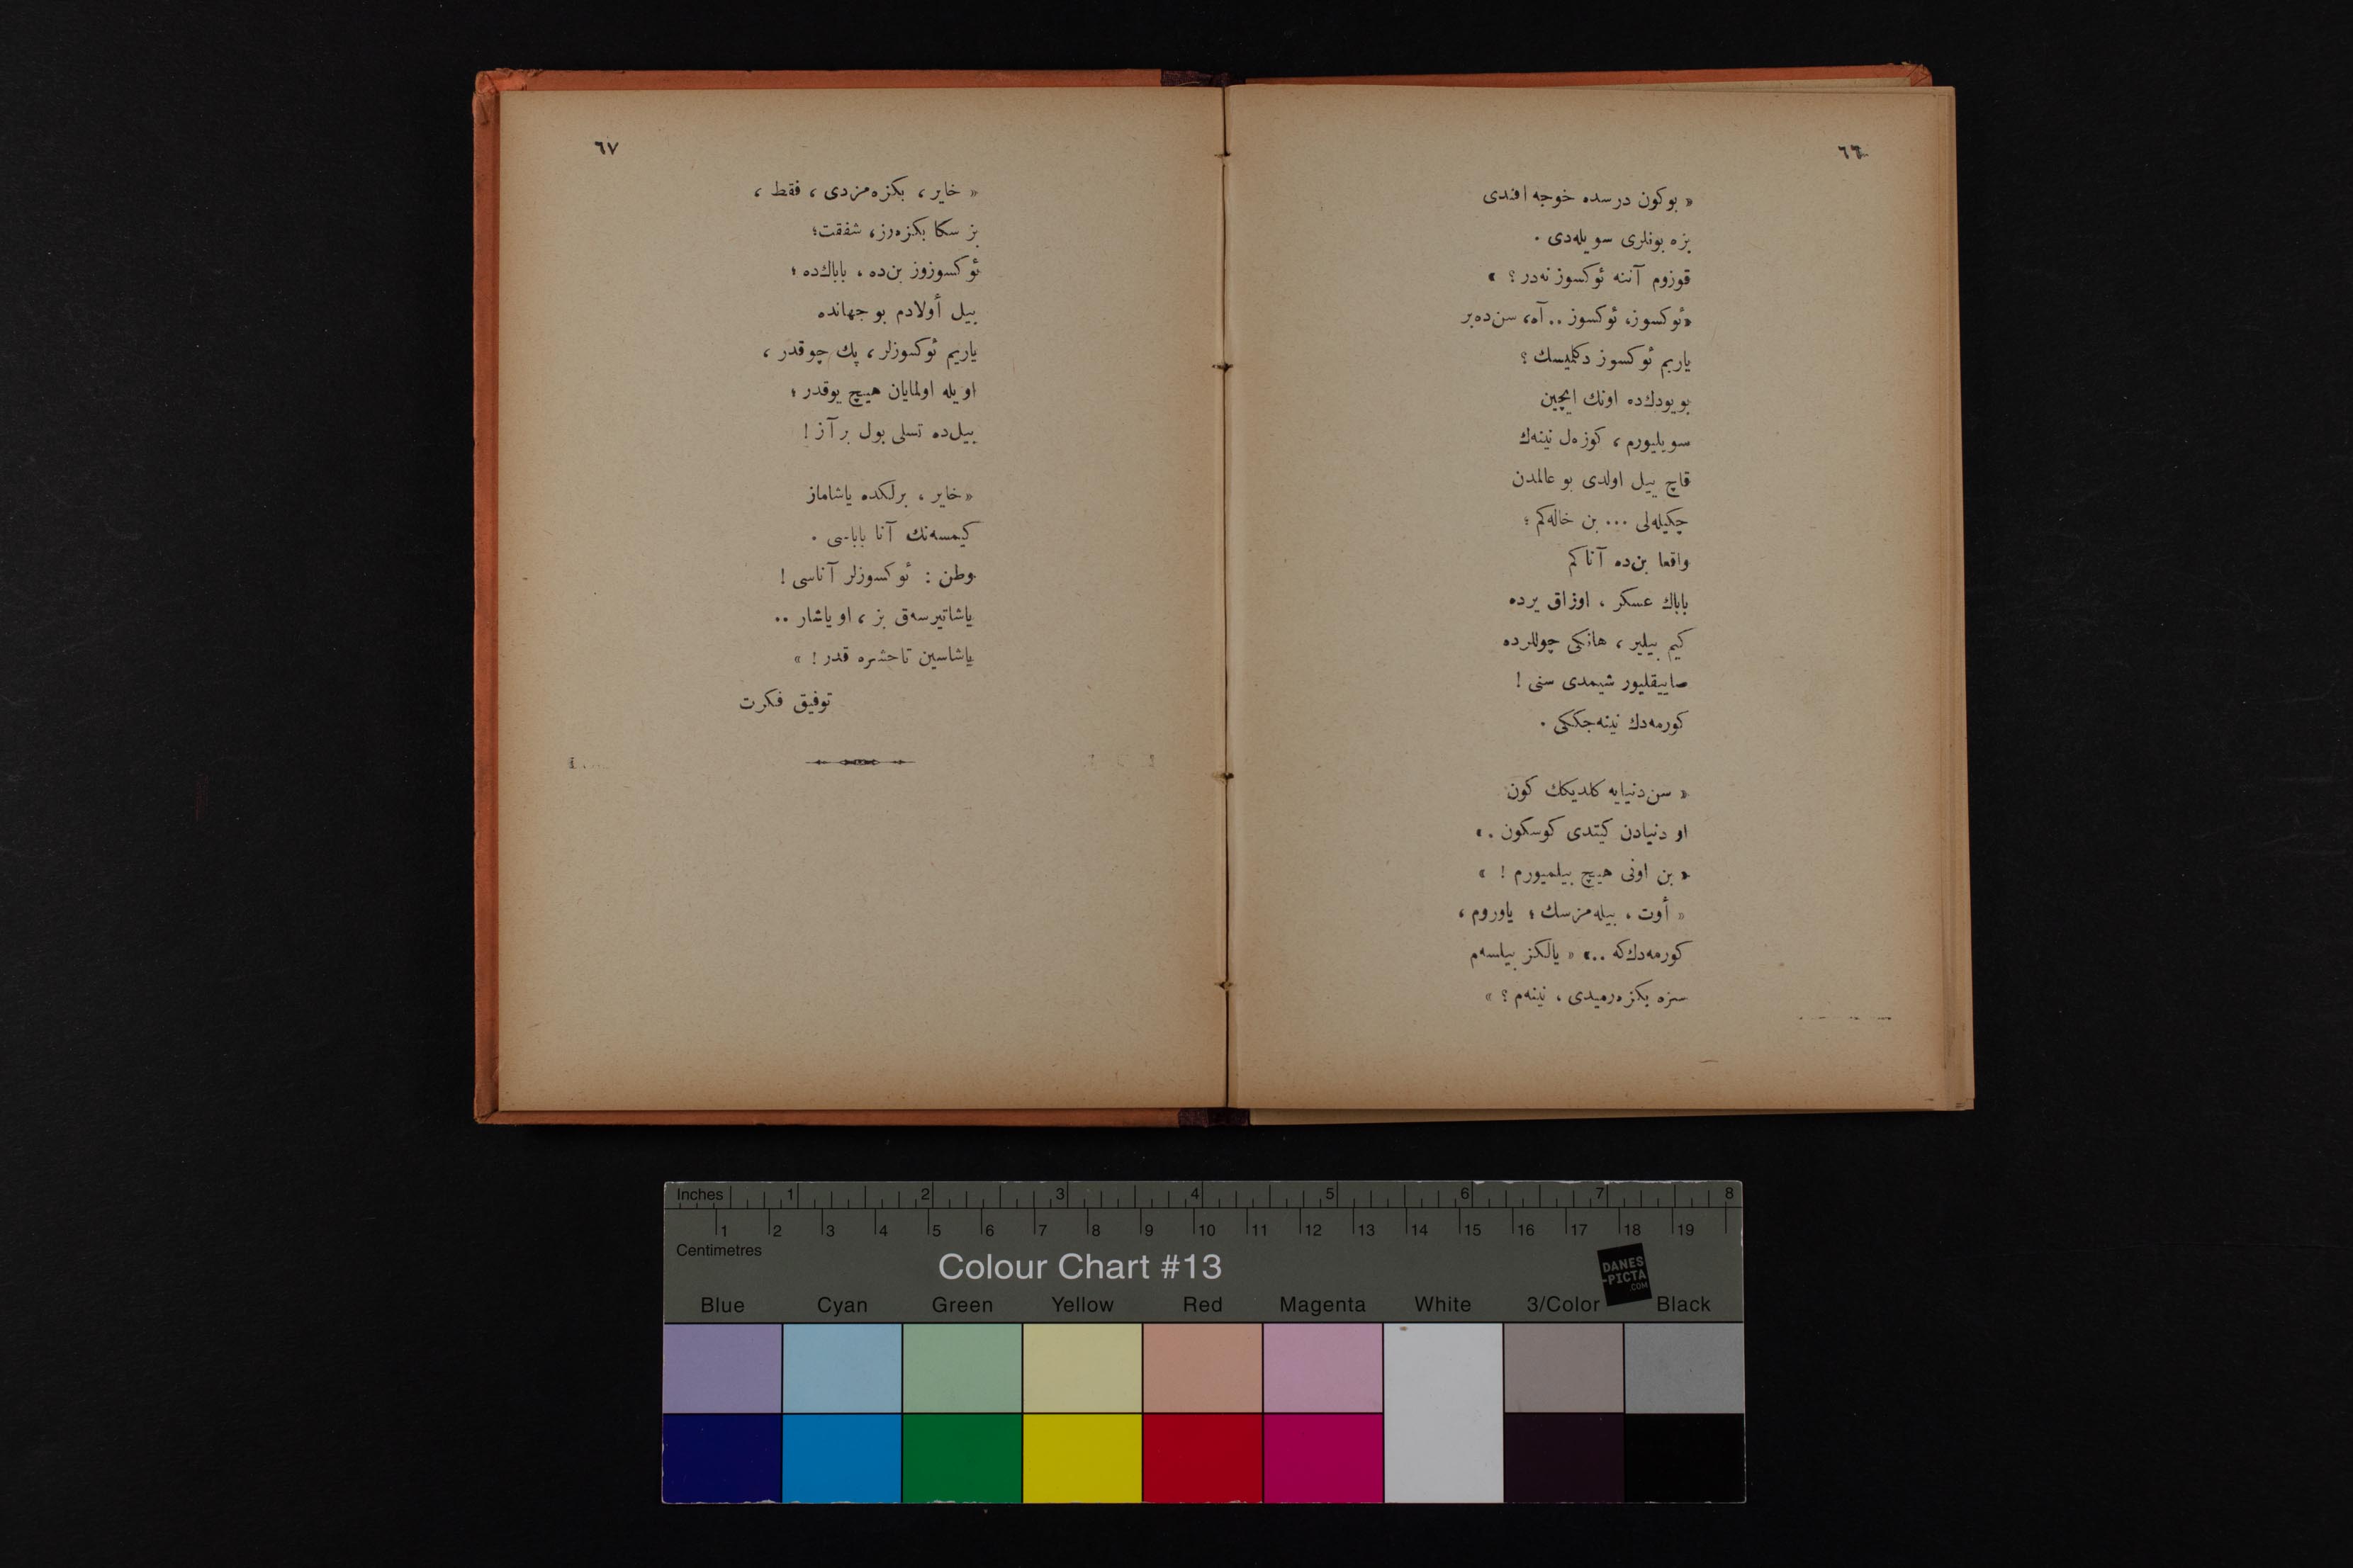 ٦٦
« بوكون درسده خوجه افندی
بزه بونلری سویله‌دی .
قوزوم آننه ئوكسوز نه‌در ؟ »
«ئوكسوز، ئوكسوز .. آه، سن‌ده‌بر
یاریم ئوكسوز دكلمیسك ؟
بویودك‌ده اونك ایچین
سویلیورم ، كوزه‌ل نینه‌ك
قاچ ییل اولدی بو عالمدن
چكیله‌لی ... بن خاله‌كم ؛
واقعا بن‌ده آناكم
باباك عسكر ، اوزاق یرده
كیم بیلیر ، هانكی چوللرده
صاییقلیور شیمدی سنی !
كورمه‌دك نینه‌جككی .
« سن‌دنیایه كلدیكك كون
او دنیادن كیتدی كوسكون .»
« بن اونی هیچ بیلمیورم ! »
« أوت ، بیله‌مزسك ؛ یاوروم ،
كورمه‌دك‌كه ..» « یالكز بیلسه‌م
سزه بكزه‌رمیدی ، نینه‌م ؟ »
٦٧
« خایر ، بكزه‌مزدی ، فقط ،
بز سكا بكزه‌رز، شفقت؛
ئوكسوزوز بن‌ده ، باباك‌ده ؛
بیل أولادم بو جهانده
یاریم ئوكسوزلر ، پك چوقدر ،
اویله اولمایان هیچ یوقدر ؛
بیل‌ده تسلی بول بر آز !
«خایر ، برلكده یاشاماز
كیمسه‌نك آنا باباسی .
وطن : ئوكسوزلر آناسی !
یاشاتیرسه‌ق بز ، او یاشار ..
یاشاسین تاحشره قدر ! »
توفیق فكرت
Inches 1 2 3 4 5 6 7 8
1 2 3 4 5 6 7 8 9 10 11 12 13 14 15 16 17 18 19
Centimetres
Colour Chart #13
DANES
-PICTA
.COM
Blue Cyan Green Yellow Red Magenta White 3/Color Black